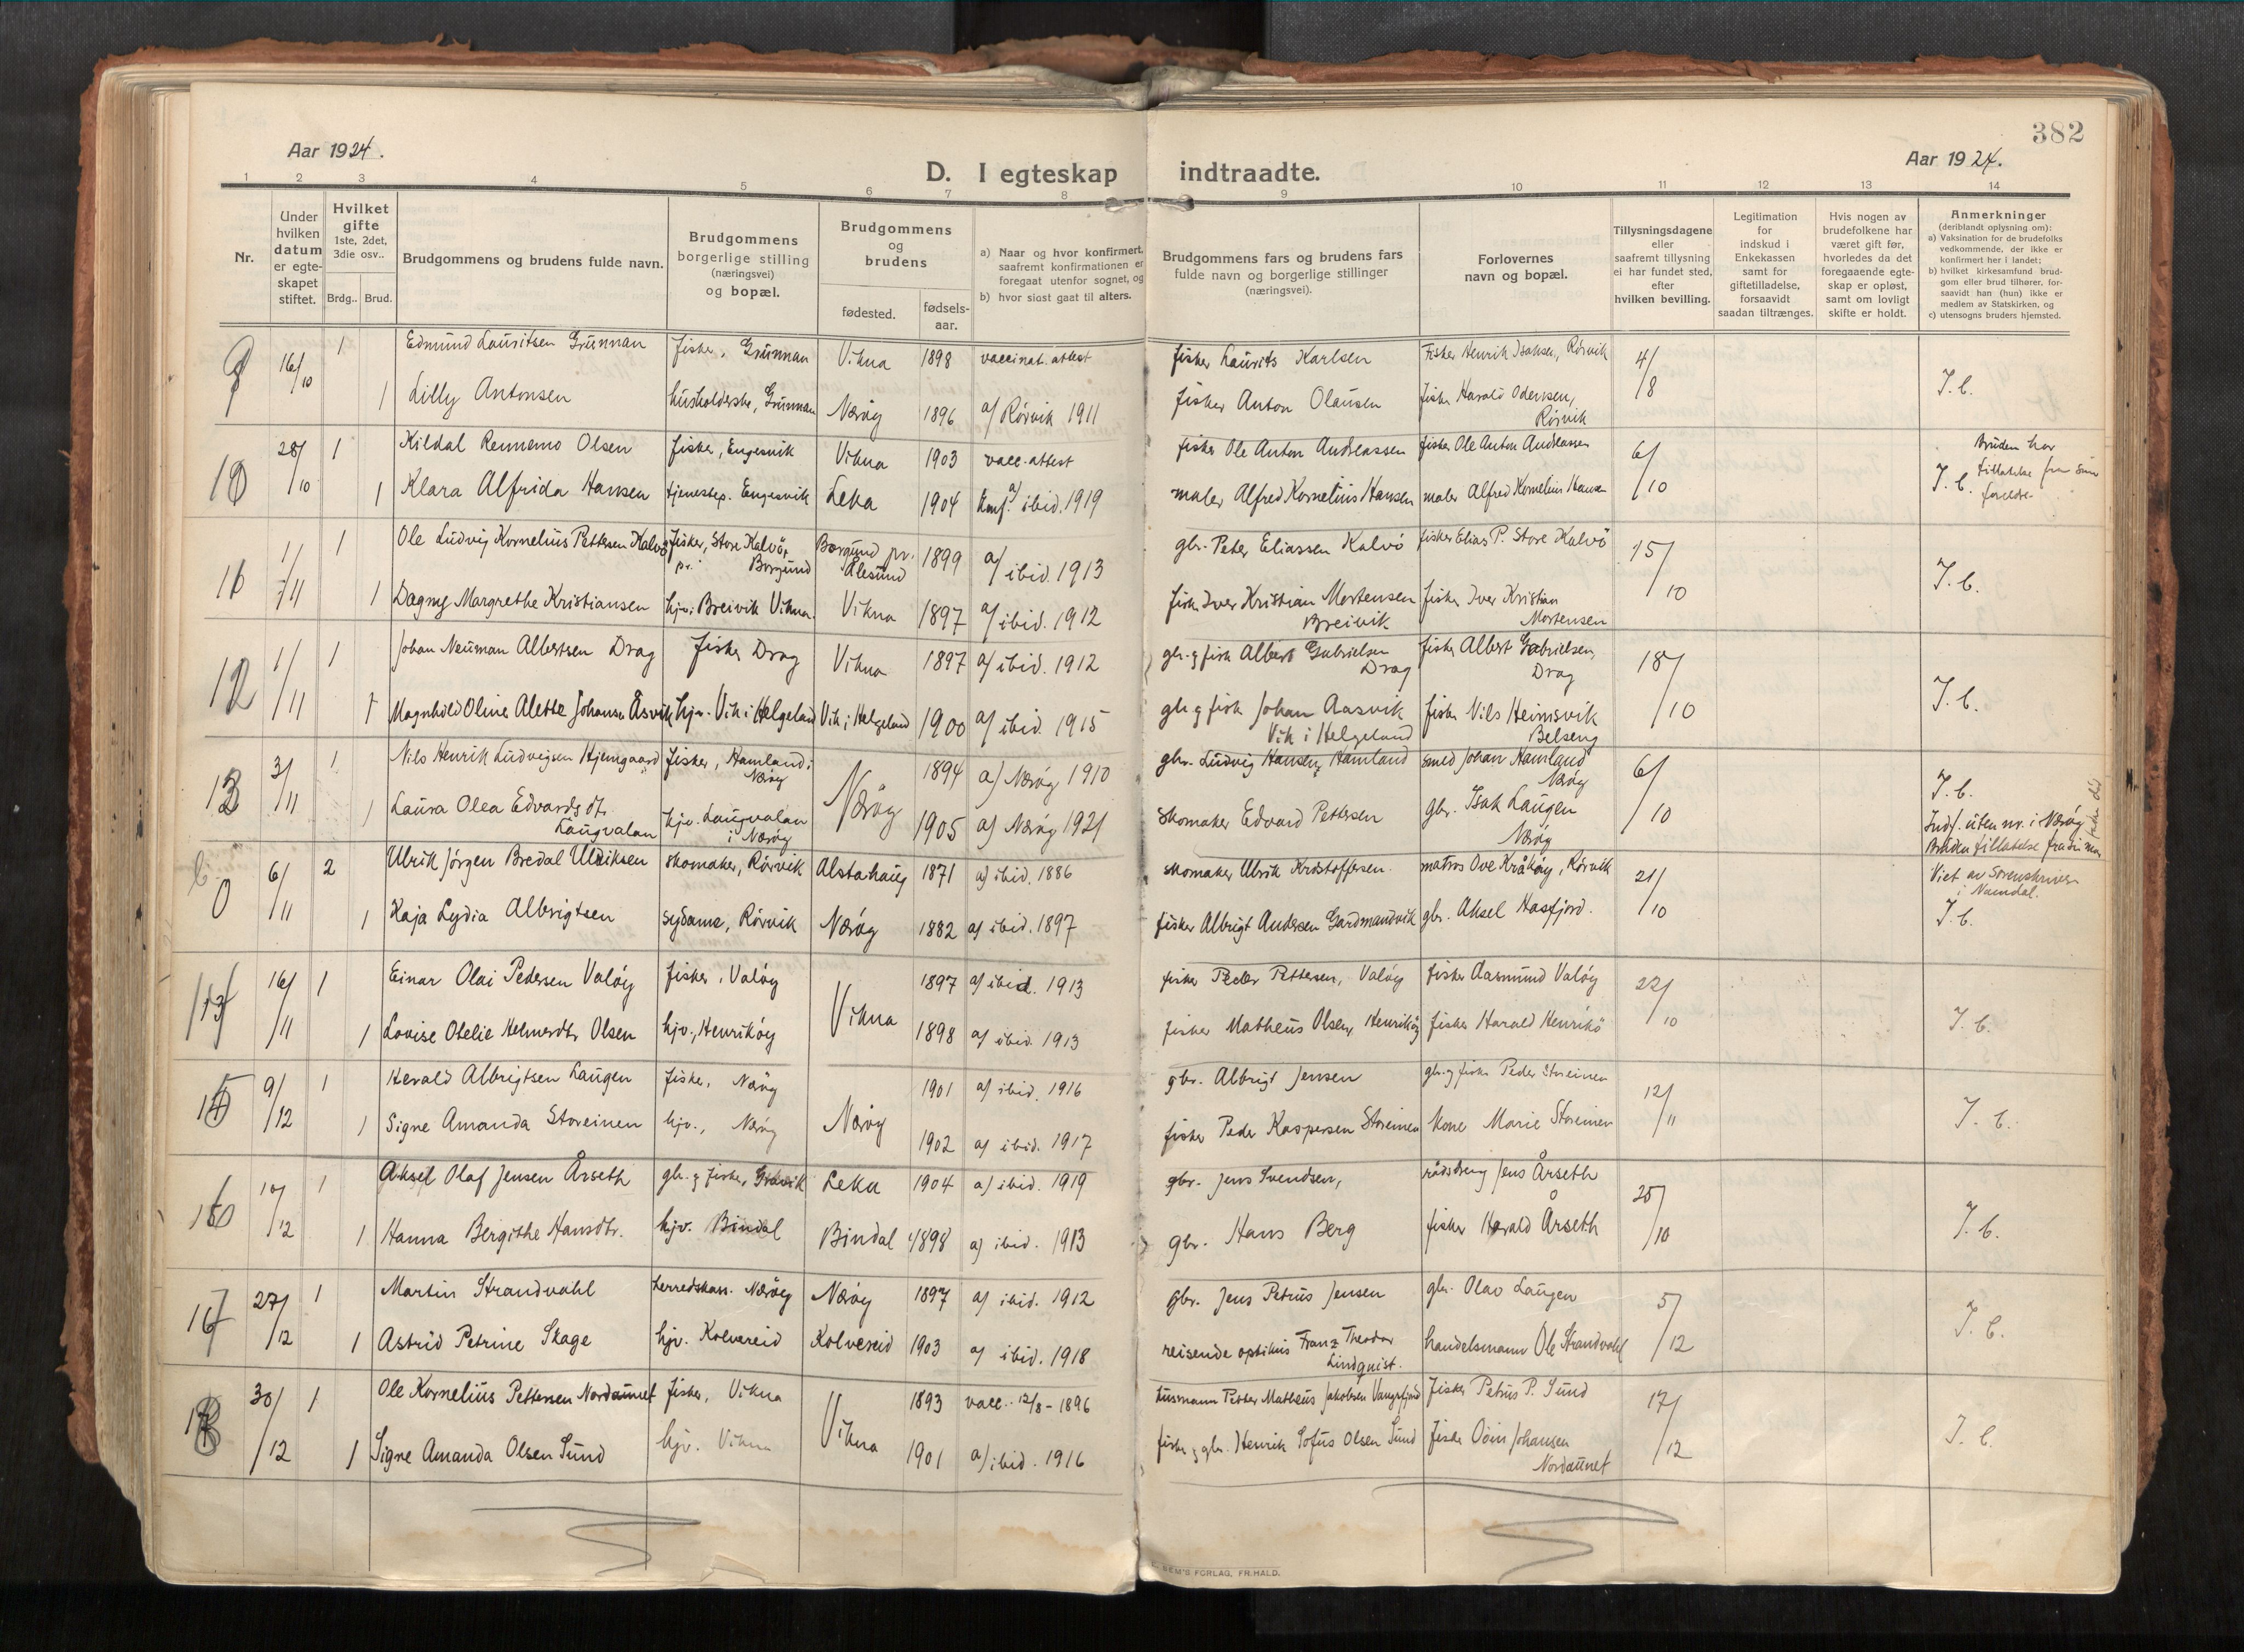 382
Aar 1924.
Aar 1924.
D. I egteskap indtraadte.
1 2 3 4 5 6 7 8 9 10 11 12 13 14
Nr.
Under hvilken datum er egte-skapet stiftet.
Hvilket gifte 1ste, 2det, 3die osv..
Brdg.. Brud.
Brudgommens og brudens fulde navn.
Brudgommens borgerlige stilling (næringsvei) og bopæl.
Brudgommens og brudens
fødested.
fødsels-aar.
a) Naar og hvor konfirmert, saafremt konfirmationen er foregaat utenfor sognet, og
b) hvor sidst gaat til alters.
Brudgommens fars og brudens fars fulde navn og borgerlige stillinger (næringsvei).
Forlovernes navn og bopæl.
Tillysningsdagene eller saafremt tillysning ei har fundet sted, efter hvilken bevilling.
Legitimation for indskud i Enkekassen samt for giftetilladelse, forsaavidt saadan tiltrænges.
Hvis nogen av brudefolkene har været gift før, hvorledes da det foregaaende egte-skap er opløst, samt om lovligt skifte er holdt.
Anmerkninger (deriblandt oplysning om):
a) Vaksination for de brudefolks vedkommende, der ikke er konfirmert her i landet;
b) hvilket kirkesamfund brud-gom eller brud tilhører, for-saavidt han (hun) ikke er medlem av Statskirken, og
c) utensogns bruders hjemsted.
16/10 1 Edmund Lauritsen Grünnan fisker, Grünnan Vikna 1898 vaccinat. attest fisker Laurits Karlsen Fisker Henrik Isaksen, Rørvik 4/8 J. C.
1 Lilly Antonsen husholderske, Grünnan Nærøy 1896 a/ Rørvik 1911 fisker Anton Olausen fisker Harald Odensen, Rørvik
10 28/10 1 Kildal Rennemo Olsen fisker, Engesvik Vikna 1903 vacc. attest fisker Ole Anton Andreassen fisker Ole Anton Andreassen 6/10 J. C. Bruden har tillatelse fra sine foreldre
1 Klara Alfrida Hansen tjenestep. Engesvik Leka 1904 Konf. a/ ibid. 1919 maler Alfred Kornelius Hansen maler Alfred Kornelius Hansen
11 1/11 1 Ole Ludvig Kornelius Pettersen Kalvø fisker, Store Kalvø, pr. Borgund Borgund pr. Ålesund 1899 a/ ibid. 1913 gbr. Peter Eliassen Kalvö fisker Elias P. Store Kalvö 15/10 J. C.
1 Dagny Margrethe Kristiansen hjv. Breivik Vikna. Vikna 1897 a/ ibid. 1912 fisk. Iver Kristian Mortensen Breivik fisker Iver Kristian Mortensen
12 1/11 1 Johan Neuman Albertsen Drag fisker Drag Vikna 1897 a/ ibid. 1912 gbr. g fisk Albert Gabrielsen Drag fisker Albert Gabrielsen, Drag 18/10 J. C.
1 Magnhild Oline Alette Johansen Åsvik hjv. Vik i Helgeland Vik i Helgeland 1900 a/ ibid. 1915 gbr g fisk Johan Aasvik Vik i Helgeland fisker Nils Heimsvik Belseng
13 3/11 1 Nils Henrik Ludvigsen Hjemgaard fisker, Hamland i Nærøy Nærøy 1894 a) Nærøy 1910 gbr. Ludvig Hansen, Hamland smed Johan Hamland Nærøy 6/10 J. C.
1 Laura Olea Edvardsdtr. Laugvalan hjv. Laugvalan i Nærøy 1905 a) Nærøy 1921 skomaker Edvard Pettersen gbr. Isak Laugen Nærøy Indf. uten nr. i Nærøy
0 6/11 2 Ulrik Jørgen Bredal Ulriksen skomaker, Rørvik Alstahaug 1871 a) ibid. 1886 skomaker Ulrik Kristoffersen matros Ove Kråkøy, Rørvik 21/10 Viet av Sorenskriver i Namdal.
1 Kaja Lydia Albrigtsen sydame, Rørvik Nærøy 1882 a) ibid. 1897 fisker Albrigt Andersen Gardmandvik gbr. Aksel Hasfjord. J. C.
16/11 1 Einar Olai Pedersen Valøy fisker, Valøy Vikna 1897 a/ ibid. 1913 fisker Peder Pettersen, Valøy fisker Aasmund Valøy 22/10 J. C.
1 Lovise Otelie Helmersdtr Olsen hjv., Henrikøy 1898 a/ ibid. 1913 fisker Matheus Olsen, Henrikøy fisker Harald Henrikö
9/12 1 Harald Albrigtsen Laugen fisker, Nærøy Nærøy 1901 a/ ibid. 1916 gbr. Albrigt Jensen gbr. g fisker Peder Storeinen 12/11 J. C.
1 Signe Amanda Storeinen hjv., Nærøy 1902 a/ ibid. 1917 fisker Peder Kaspersen Storeinen kone Marie Storeinen
10/12 1 Aksel Olaf Jensen Årseth gbr. g fisker, Gravik Leka 1904 a) ibid. 1919 gbr. Jens Svendsen, Jens Årseth 25/10 J. C.
1 Hanna Bergithe Hansdtr. hjv. Bindal Bindal 1898 a) ibid. 1913 gbr. Hans Berg fisker Harald Årseth
27/12 1 Martin Strandvahl herredskass. Nærøy Nærøy 1897 a) ibid. 1912 gbr. Jens Petrus Jensen gbr. Olav Laugen 5/12 J. C.
1 Astrid Petrine Skage hjv. Kolvereid Kolvereid 1903 a) ibid. 1918 reisende optikus Franz Theodor Lindquist. handelsmann Ole Strandvahl
30/12 1 Ole Kornelius Pettersen Nordaunet fisker, Vikna Vikna 1893 vacc. 12/8 - 1896 husmann Petter Matheus Jakobsen Vangsfjord fisker Petrus P. Sund 17/12 J. C.
1 Signe Amanda Olsen Sund hjv. Vikna 1901 a) ibid. 1916 fisker g gbr. Henrik Sofus Olsen Sund fisker Odin Johansen Nordaunet
SEM'S FORLAG, FR.HALD.